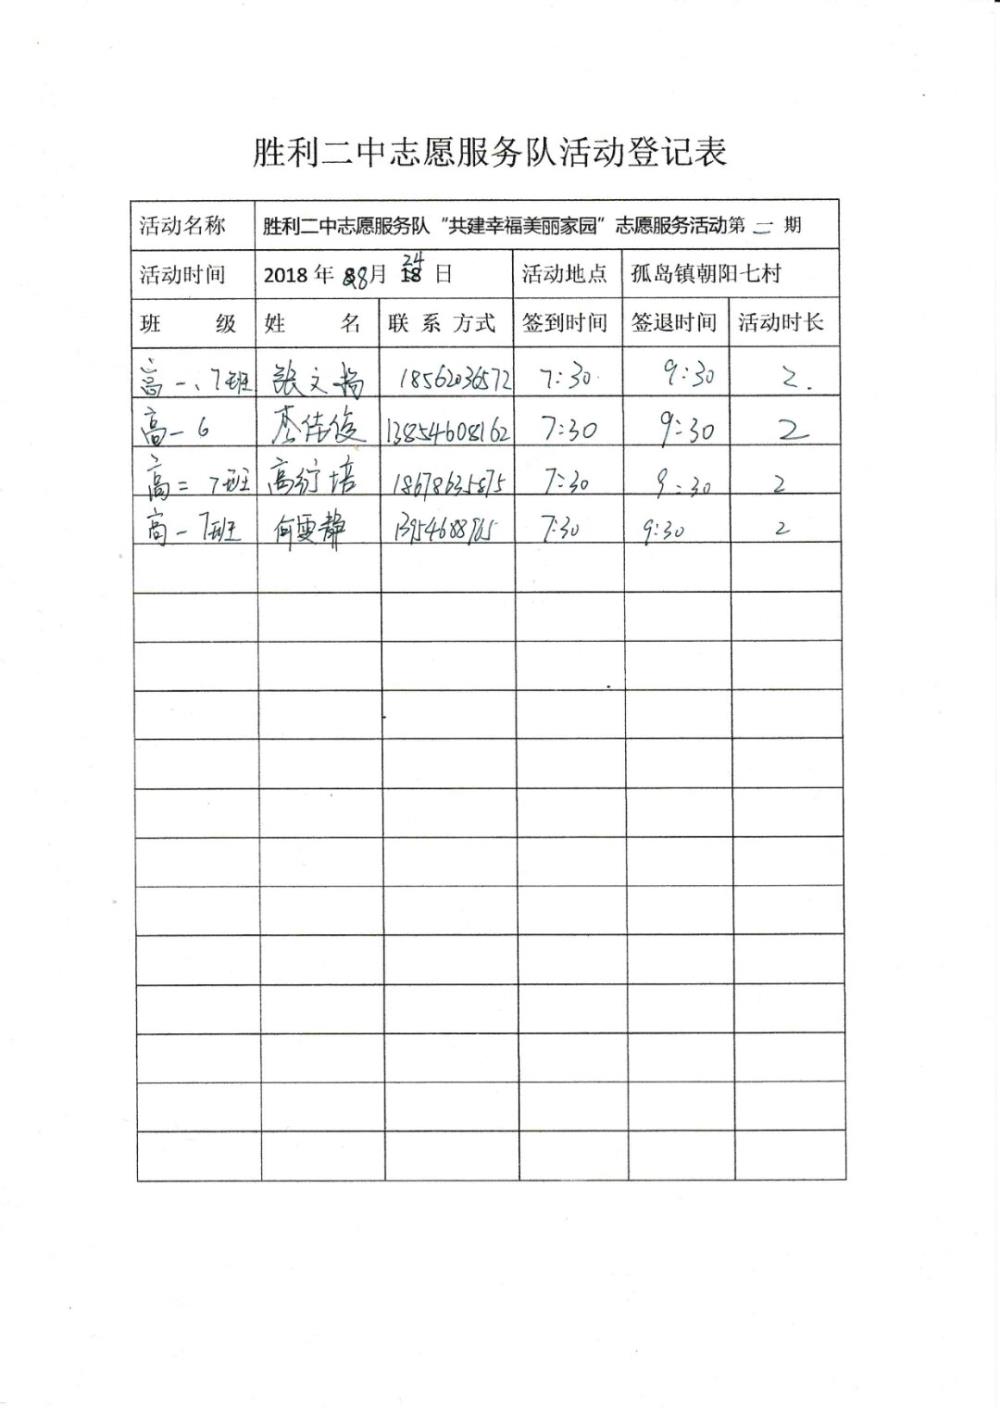 胜利二中志愿服务队活动登记表
活动名称 胜利二中志愿服务队“共建幸福美丽家园”志愿服务活动第二期
活动时间 2018年8月24日 活动地点 孤岛镇朝阳七村
班 级 姓 名 联系方式 签到时间 签退时间 活动时长
高一、7班 张文扬 18562036572 7:30 9:30 2.
高一6 李佳俊 13854608162 7:30 9:30 2
高二7班 高衍培 18678635875 7:30 9:30 2
高一7班 何雯静 7:30 9:30 2